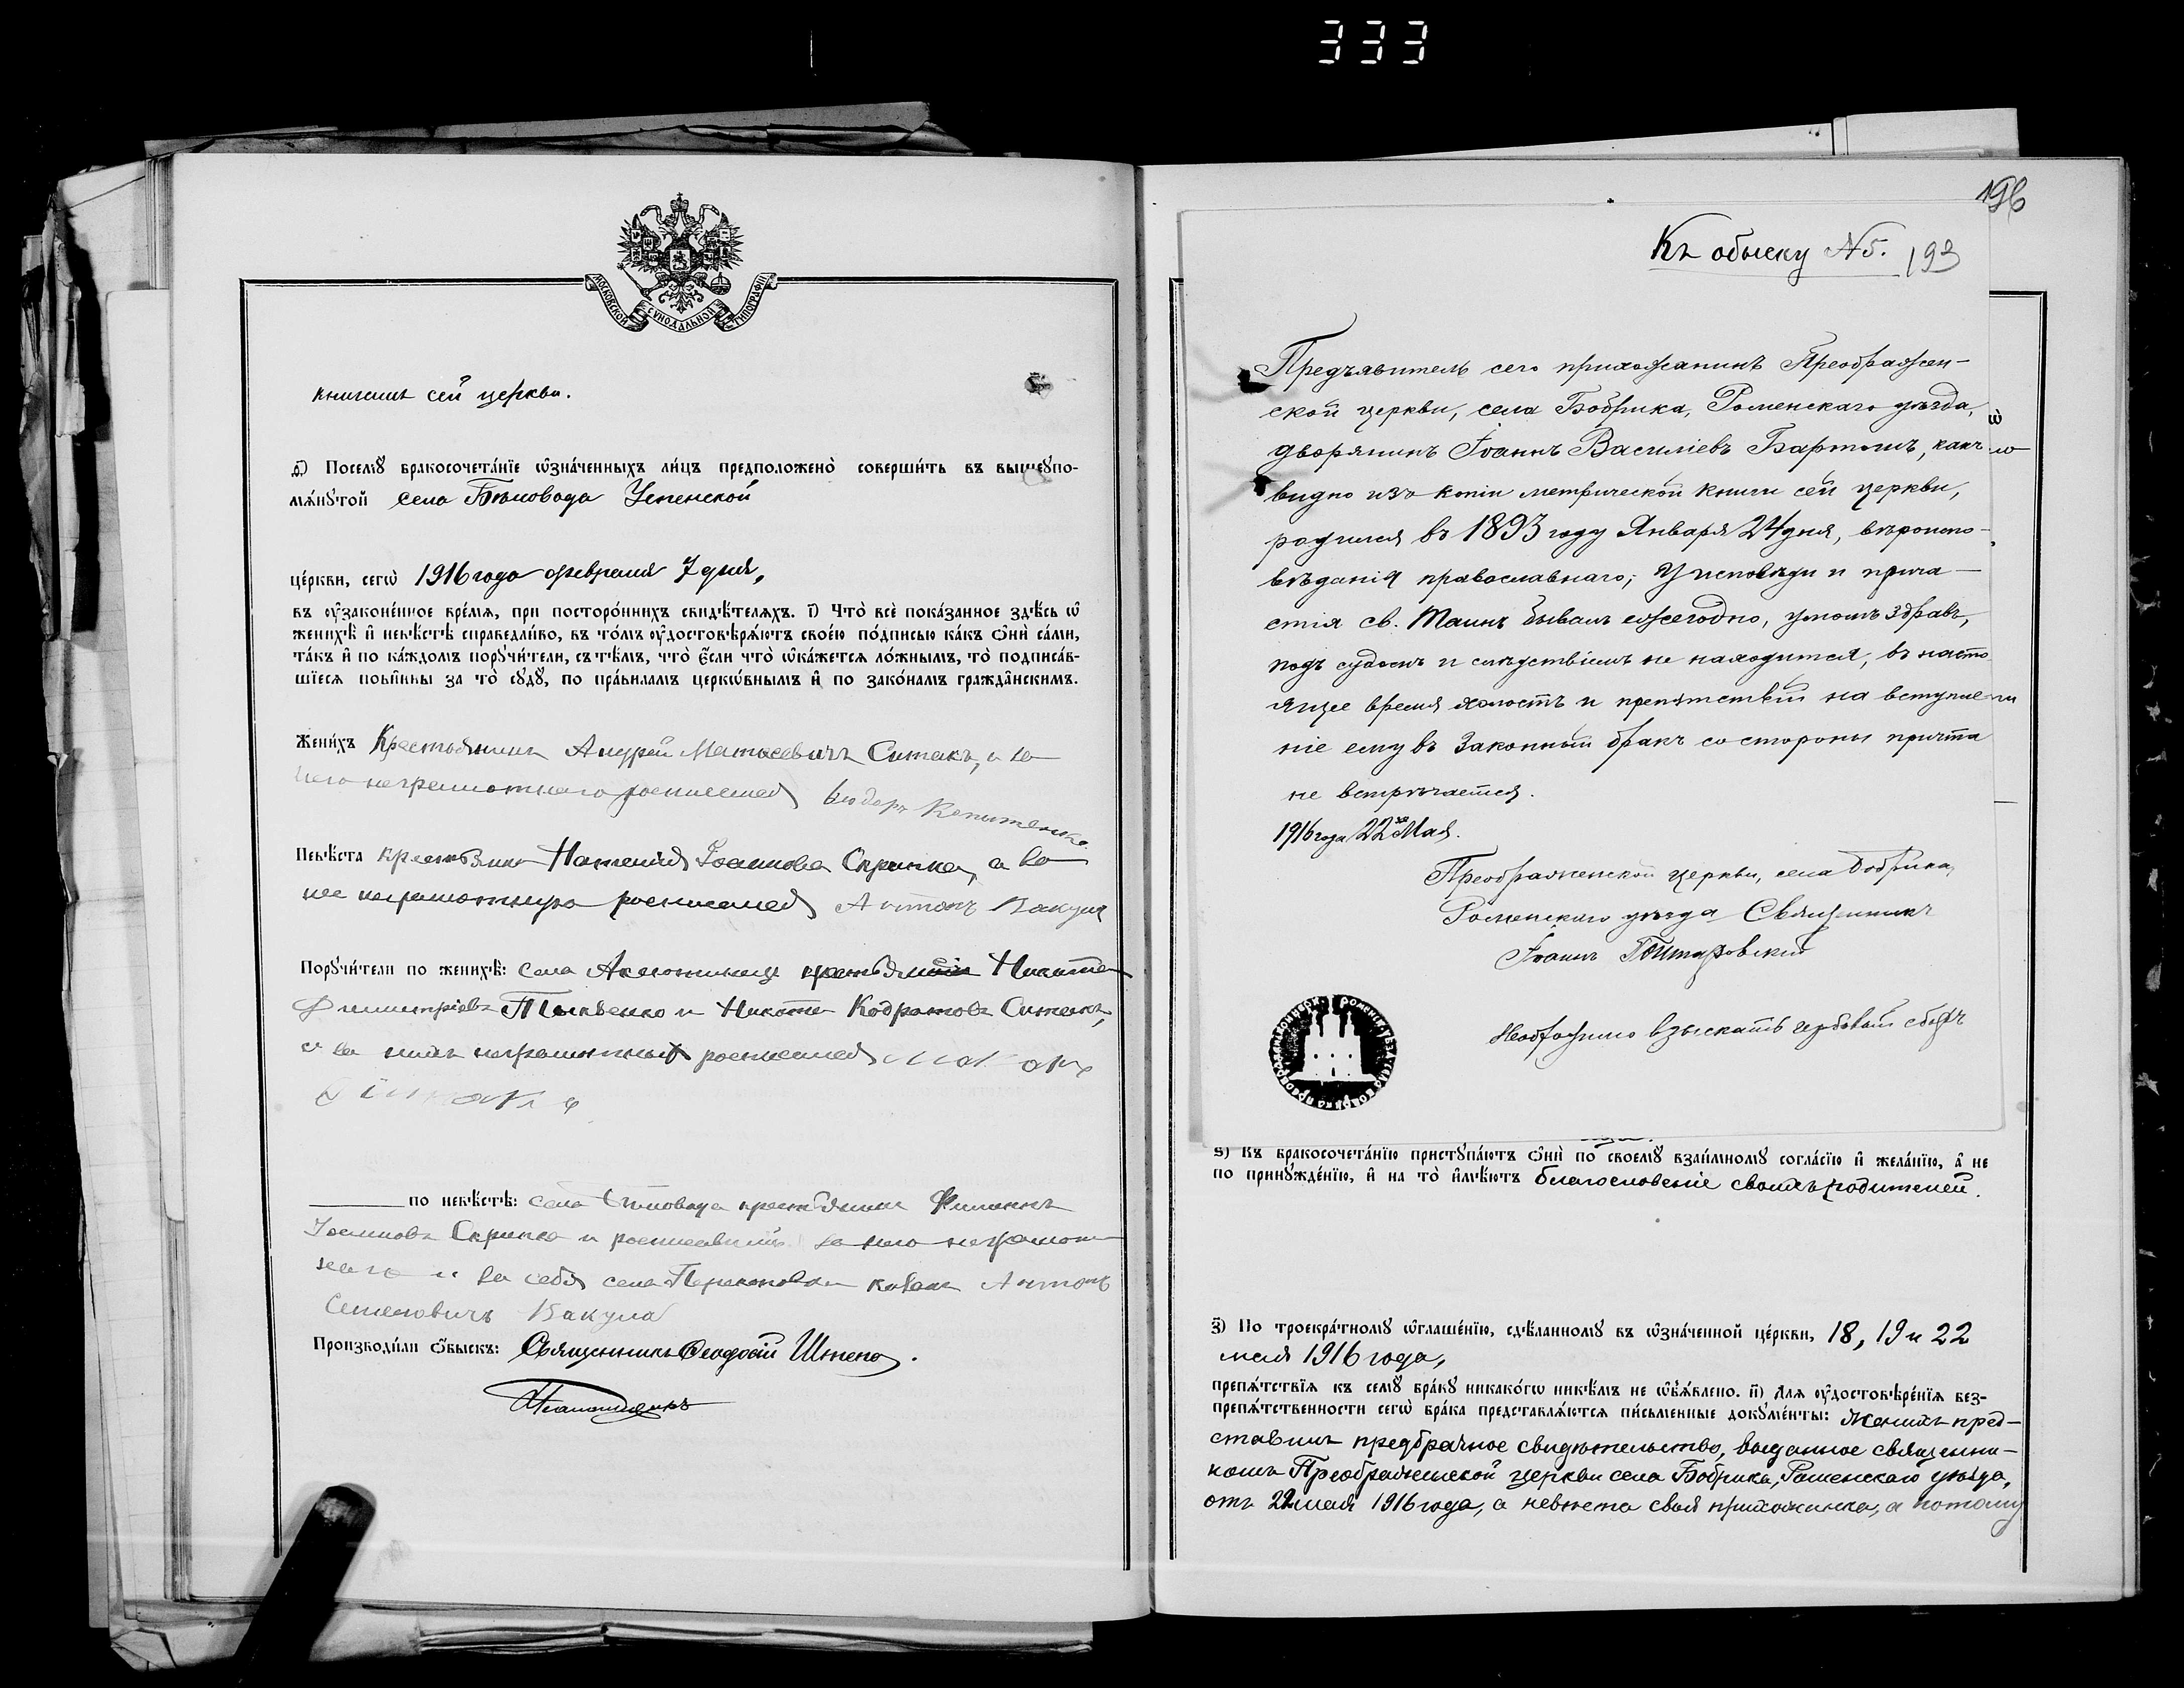 333
МОСКОВСКОЙ СѴНОДАЛЬНОЙ ТИПОГРАФІИ
книгамъ сей церкви.
ѳ҃) Посемꙋ̀ бракосочета́нїе ѡ҆зна́ченныхъ ли́цъ предположено̀ соверши́ть въ вышеꙋпо-
мѧ́нꙋтой села Бѣловода Успенской
це́ркви, сегѡ̀ 1916 года февраля 7 дня,
въ ᲂу҆законе́нное вре́мя, при посторо́ннихъ свидѣ́телѧхъ. і҃) Что̀ всѐ пока́занное здѣ́сь ѡ҆
женихѣ̀ и҆ невѣ́стѣ справедли́во, въ то́мъ ᲂу҆достовѣрѧ́ютъ свое́ю по́дписью ка́къ ѻ҆нѝ са́ми,
та́къ и҆ по ка́ждомъ порꙋчи́тели, съ тѣ́мъ, что̀ є҆́сли что̀ ѡ҆ка́жется ло́жнымъ, то̀ подписа́в-
шїеся пови́нны за то̀ сꙋдꙋ̀, по пра́виламъ церкѡ́внымъ и҆ по зако́намъ гражда̂нскимъ.
Жени́хъ Крестьянинъ Андрей Матѳеевичъ Ситакъ, а за
него неграмотнаго росписался
Невѣ́ста крестьянка Наталія Іоаннова Скрипка, а за
нее неграмотную росписался Антонъ Вакула
Порꙋчи́тели по женихѣ̀: села крестьяне Никита
Димитріевъ и Никита Кодратовъ Ситакъ,
а за нихъ неграмотныхъ росписался
по невѣ́стѣ: села Бѣловода крестьянинъ Филиппъ
Іоанновъ Скрипка и росписавшійся за него неграмот
наго и за себя села козакъ Антонъ
Семеновичъ Вакула
Производи́ли ѻ҆́быскъ: Священникъ Ѳеодосій Штепа.
Псаломщикъ
196
Къ обыску №5. 193
Предъявитель сего прихожанинъ Преображен-
ской церкви, села Бобрика, Роменскаго уѣзда,
дворянинъ Іоаннъ Василіевъ Бартошъ, какъ
видно изъ копіи метрической книги сей церкви,
родился въ 1893 году Января 24 дня, вѣроиспо-
вѣданія православнаго; У исповѣди и прича-
стія св. Таинъ бывалъ ежегодно, умомъ здравъ,
подъ судомъ и слѣдствіемъ не находится, въ насто
ящее время холостъ и препятствій на вступле
ніе ему въ Законный бракъ со стороны причта
не встрѣчается.
1916 года 22го Мая.
Преображенской церкви, села Бобрика,
Роменскаго уѣзда Священникъ
Іоаннъ
Необходимо взыскать гербовый сборъ
ѕ҃) Къ бракосочета́нїю пристꙋпа́ютъ ѻ҆нѝ по своемꙋ̀ взаи́мномꙋ согла́сїю и҆ жела́нїю, а҆ не
по принꙋжде́нїю, и҆ на то̀ и҆мѣ́ютъ благословеніе своихъ родителей.
з҃) По троекра́тномꙋ ѡ҆глаше́нїю, сдѣ́ланномꙋ въ ѡ҆зна́ченной це́ркви, 18, 19 и 22
мая 1916 года,
препѧ́тствїя къ семꙋ̀ бра́кꙋ никако́гѡ никѣ́мъ не ѡ҆б̾ѧ́влено. и҃) Для ᲂу҆достовѣре́нїя без-
препѧ́тственности сегѡ̀ бра́ка представлѧ́ются пи́сьменные докꙋме́нты: Женихъ пред-
ставилъ предбрачное свидѣтельство, выданное священни-
комъ Преображенской церкви села Бобрика, Роменскаго уѣзда,
отъ 22 мая 1916 года, а невѣста своя прихожанка, а потому